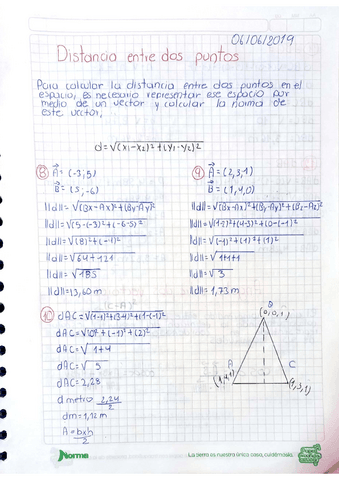 06/06/2019
Distancia entre dos puntos
Para calcular la distancia entre dos puntos en el
espacio, es necesario representar ese espacio por
medio de un vector y calcular la norma de
este vector,
d=√(x₁-x₂)²+(y₁-y₂)²
8) A⃗=(-3,5)
B⃗=(5,-6)
||d||=√(Bx-Ax)²+(By-Ay)²
||d||=√(5-(-3)²+(-6-5)²
||d||=√(8)²+(-11)²
||d||=√64+121
||d||=√185
||d||=13,60 m
9) A⃗=(2,3,1)
B⃗=(1,4,0)
||d||=√(Bx-Ax)²+(By-Ay)²+(Bz-Az)²
||d||=√(1-2)²+(4-3)²+(0-(-1)²
||d||=√(-1)²+(1)²+(1)²
||d||=√1+1+1
||d||=√3
||d||=1,73 m
10) dAC=√(1-1)²+(3-4)²+(1-(-1)²
dAC=√(0)²+(-1)²+(2)²
dAC=√1+4
dAC=√5
dAC=2,23
d metro 2,24/2
dm=1,12 m
A=bxh/2
B
(0,0,1)
A
C
(1,4,1)
(1,3,1)
Norma
La tierra es nuestra única casa, cuidémosla.